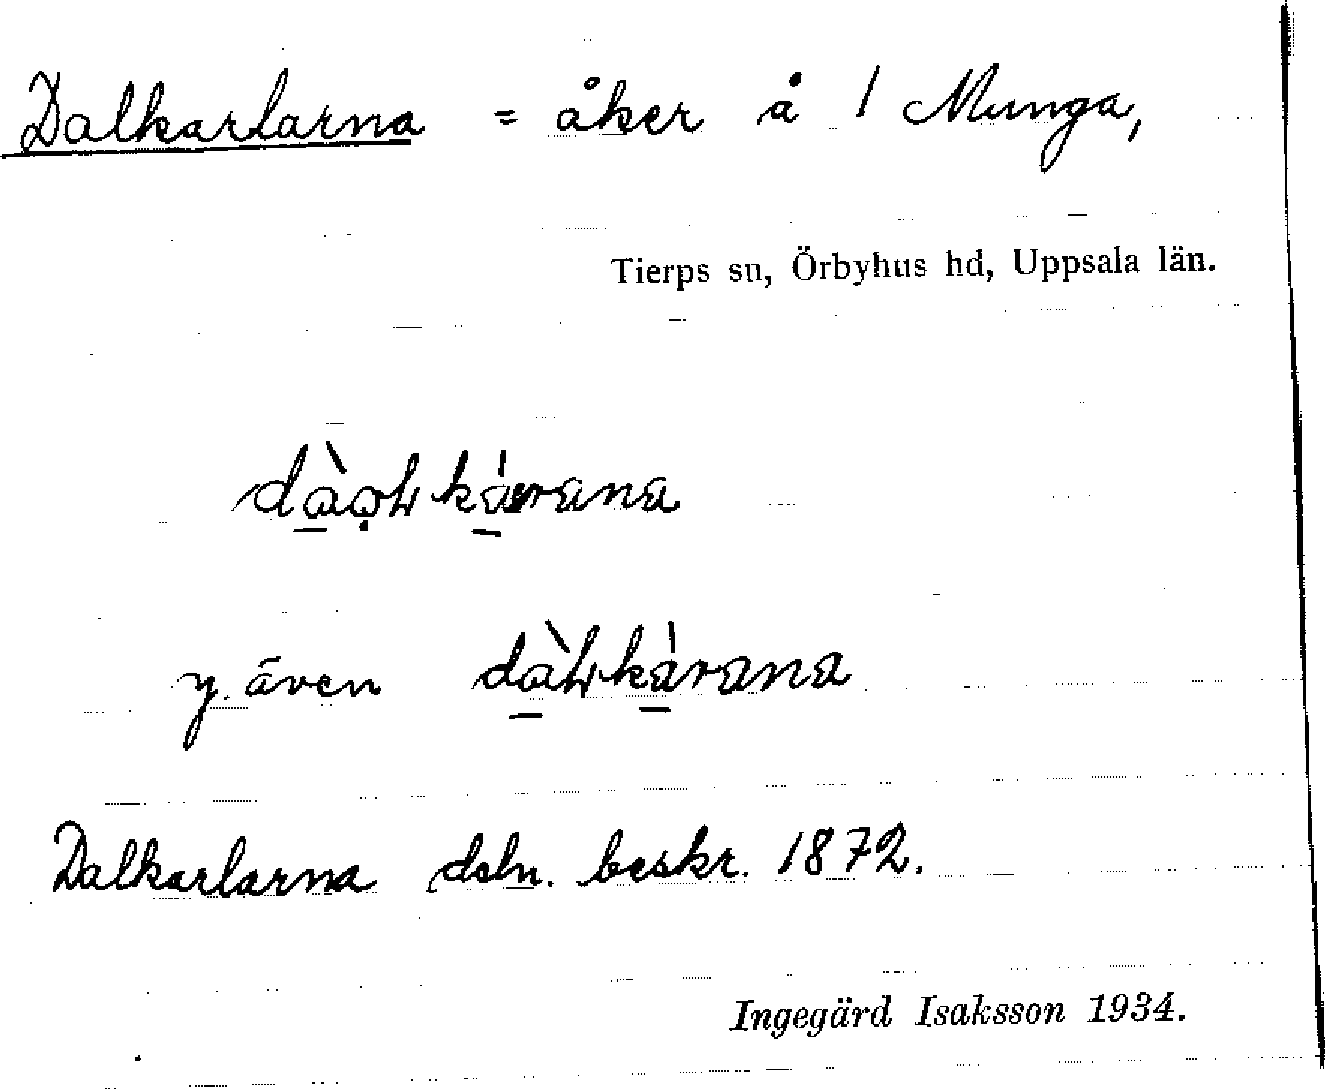 Dalkarlarna = åker å 1 Munga,
Tierps sn, Örbyhus hd, Uppsala län.
y. även
Dalkarlarna dsln. beskr. 1872.
Ingegärd Isaksson 1934.